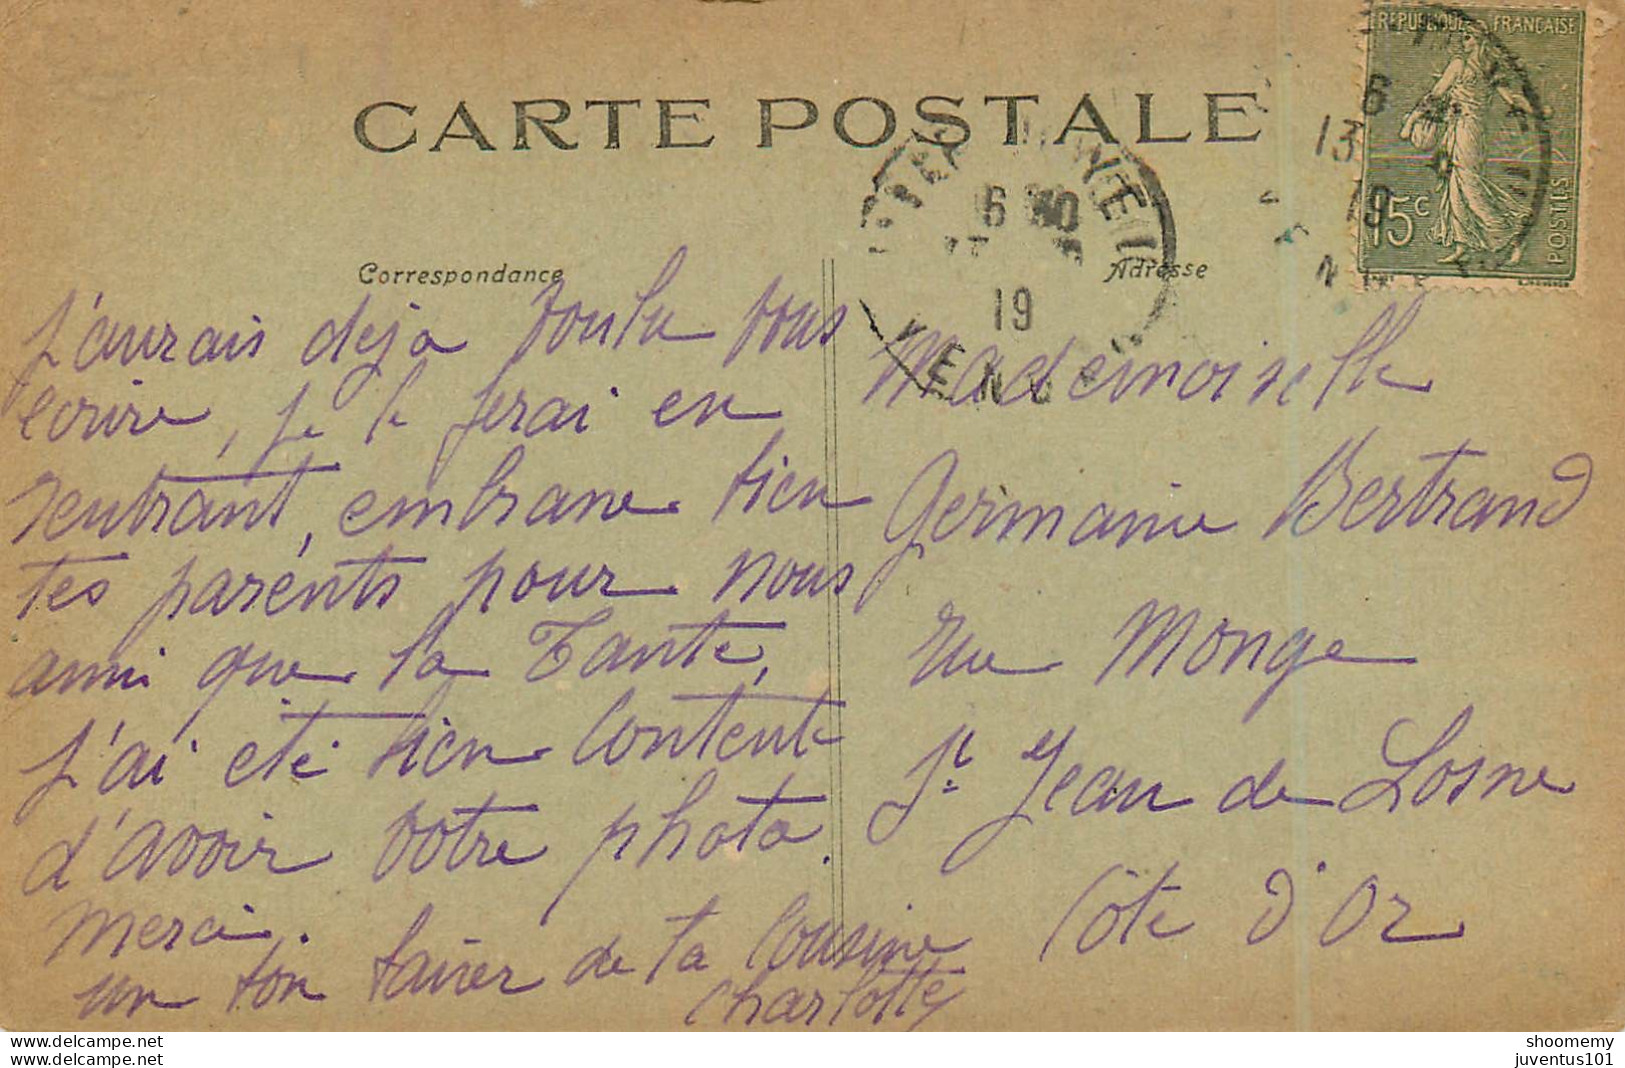 CARTE POSTALE
REPUBLIQUE FRANÇAISE
15c
POSTES
6
13
19
6 30
19
VENDÉE
Correspondance
Adresse
J'aurais deja voulu vous
écrire, je le ferai en
rentrant, embrasse bien
tes parents pour nous
ainsi que la Tante,
J'ai été bien contente
d'avoir votre photo.
Merci.
un bon baiser de ta Cousine
Charlotte
Mademoiselle
Germaine Bertrand
rue Monge
St Jean de Losne
Côte d'Or
shoomemy
juventus101